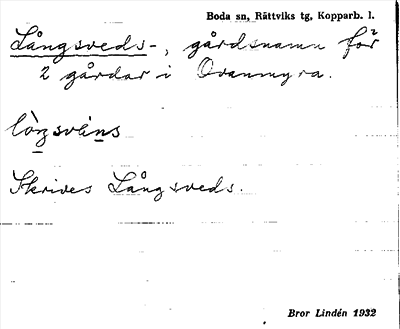 Boda sn, Rättviks tg, Kopparb. l.
Långsveds-, gårdsnamn för
2 gårdar i Ovanmyra.
Skrives Långsveds.
Bror Lindén 1932